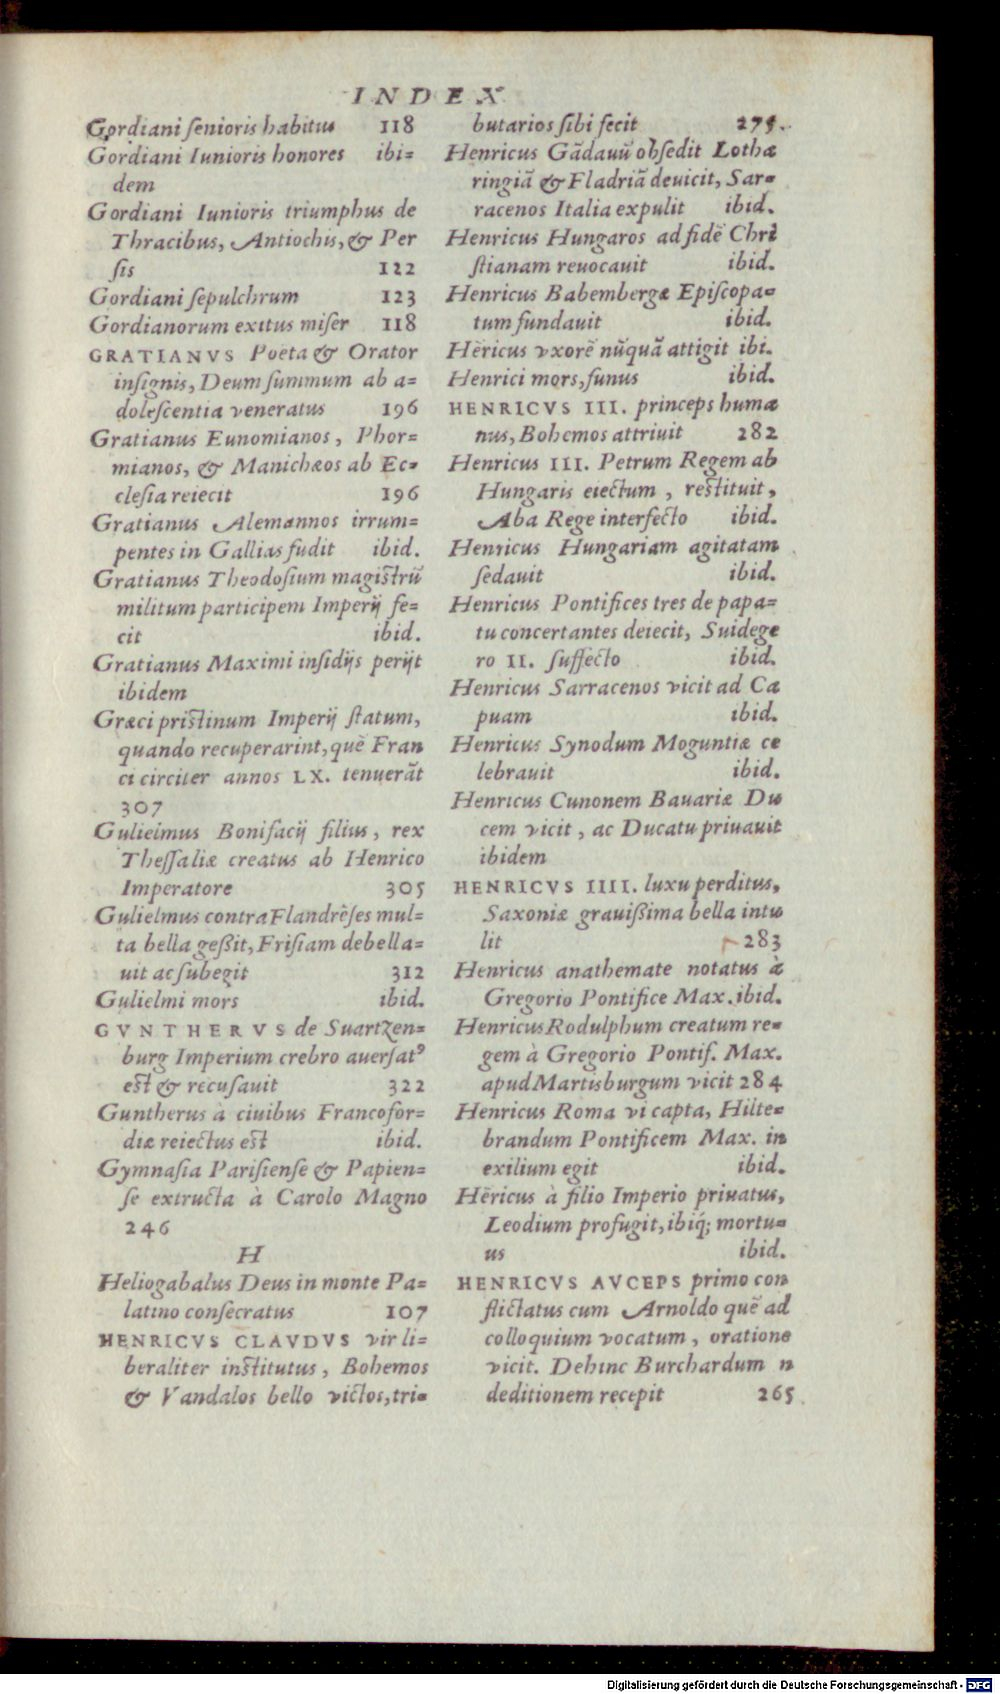 INDEX
Gordiani ſenioris habitus 118
Gordiani Iunioris honores ibi=
dem
Gordiani Iunioris triumphus de
Thracibus, Antiochis, & Per
ſis 122
Gordiani ſepulchrum 123
Gordianorum exitus miſer 118
GRATIANVS Poëta & Orator
inſignis, Deum ſummum ab a=
doleſcentia veneratus 196
Gratianus Eunomianos, Phor=
mianos, & Manichæos ab Ec=
cleſia reiecit 196
Gratianus Alemannos irrum=
pentes in Gallias fudit ibid.
Gratianus Theodoſium magiſtrũ
militum participem Imperij fe=
cit ibid.
Gratianus Maximi inſidijs perijt
ibidem
Græci priſtinum Imperij ſtatum,
quando recuperarint, quẽ Fran
ci circiter annos LX. tenuerãt
307
Gulielmus Bonifacij filius, rex
Theſſaliæ creatus ab Henrico
Imperatore 305
Gulielmus contra Flandrẽſes mul=
ta bella geßit, Friſiam debella=
uit ac ſubegit 312
Gulielmi mors ibid.
GVNTHERVS de Suartzen=
burg Imperium crebro auerſatꝰ
eſt & recuſauit 322
Guntherus à ciuibus Francofor=
diæ reiectus eſt ibid.
Gymnaſia Pariſienſe & Papien=
ſe extructa à Carolo Magno
246
H
Heliogabalus Deus in monte Pa=
latino conſecratus 107
HENRICVS CLAVDVS vir li=
beraliter inſtitutus, Bohemos
& Vandalos bello victos, tri=
butarios ſibi fecit 275.
Henricus Gãdauũ obſedit Lotha
ringiã & Fladriã deuicit, Sar=
racenos Italia expulit ibid.
Henricus Hungaros ad fidẽ Chri
ſtianam reuocauit ibid.
Henricus Babembergæ Epiſcopa=
tum fundauit ibid.
Hẽricus vxorẽ nũquã attigit ibi.
Henrici mors, funus ibid.
HENRICVS III. princeps huma
nus, Bohemos attriuit 282
Henricus III. Petrum Regem ab
Hungaris eiectum, reſtituit,
Aba Rege interfecto ibid.
Henricus Hungariam agitatam
ſedauit ibid.
Henricus Pontifices tres de papa=
tu concertantes deiecit, Suidege
ro II. ſuffecto ibid.
Henricus Sarracenos vicit ad Ca
puam ibid.
Henricus Synodum Moguntiæ ce
lebrauit ibid.
Henricus Cunonem Bauariæ Du
cem vicit, ac Ducatu priuauit
ibidem
HENRICVS IIII. luxu perditus,
Saxoniæ grauißima bella intu
lit 283
Henricus anathemate notatus à
Gregorio Pontifice Max. ibid.
Henricus Rodulphum creatum re=
gem à Gregorio Pontif. Max.
apud Martisburgum vicit 284
Henricus Roma vi capta, Hilte=
brandum Pontificem Max. in
exilium egit ibid.
Hẽricus à filio Imperio priuatus,
Leodium profugit, ibiq́; mortu=
us ibid.
HENRICVS AVCEPS primo con
flictatus cum Arnoldo quẽ ad
colloquium vocatum, oratione
vicit. Dehinc Burchardum n
deditionem recepit 265
Digitalisierung gefördert durch die Deutsche Forschungsgemeinschaft - DFG